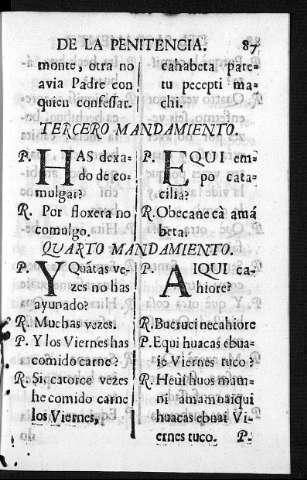 DE LA PENITENCIA. 87
monte, otra no
avia Padre con
quien confessar.
cahabeta pare-
tu pecepti ma-
chi.
TERCERO MANDAMIENTO.
P. HAS dexa-
do de co-
mulgar?
R. Por floxera no
comulgo.
P. EQUI em-
po cata-
cilia?
R. Obecane cà amá
beta.
QUARTO MANDAMIENTO.
P. YQuátas ve-
zes no has
ayunado?
R. Muchas vezes.
P. Y los Viernes has
comido carne?
R. Si, catorce vezes
he comido carne
los Viernes,
P. AIQUI ca-
hiore?
R. Bucruci necahiore
P. Equi huacas ebua-
sie Viernes tuco?
R. Heùi huos mam-
ni amamoaiqui
huacas ebuai Vi-
ernes tuco. P.